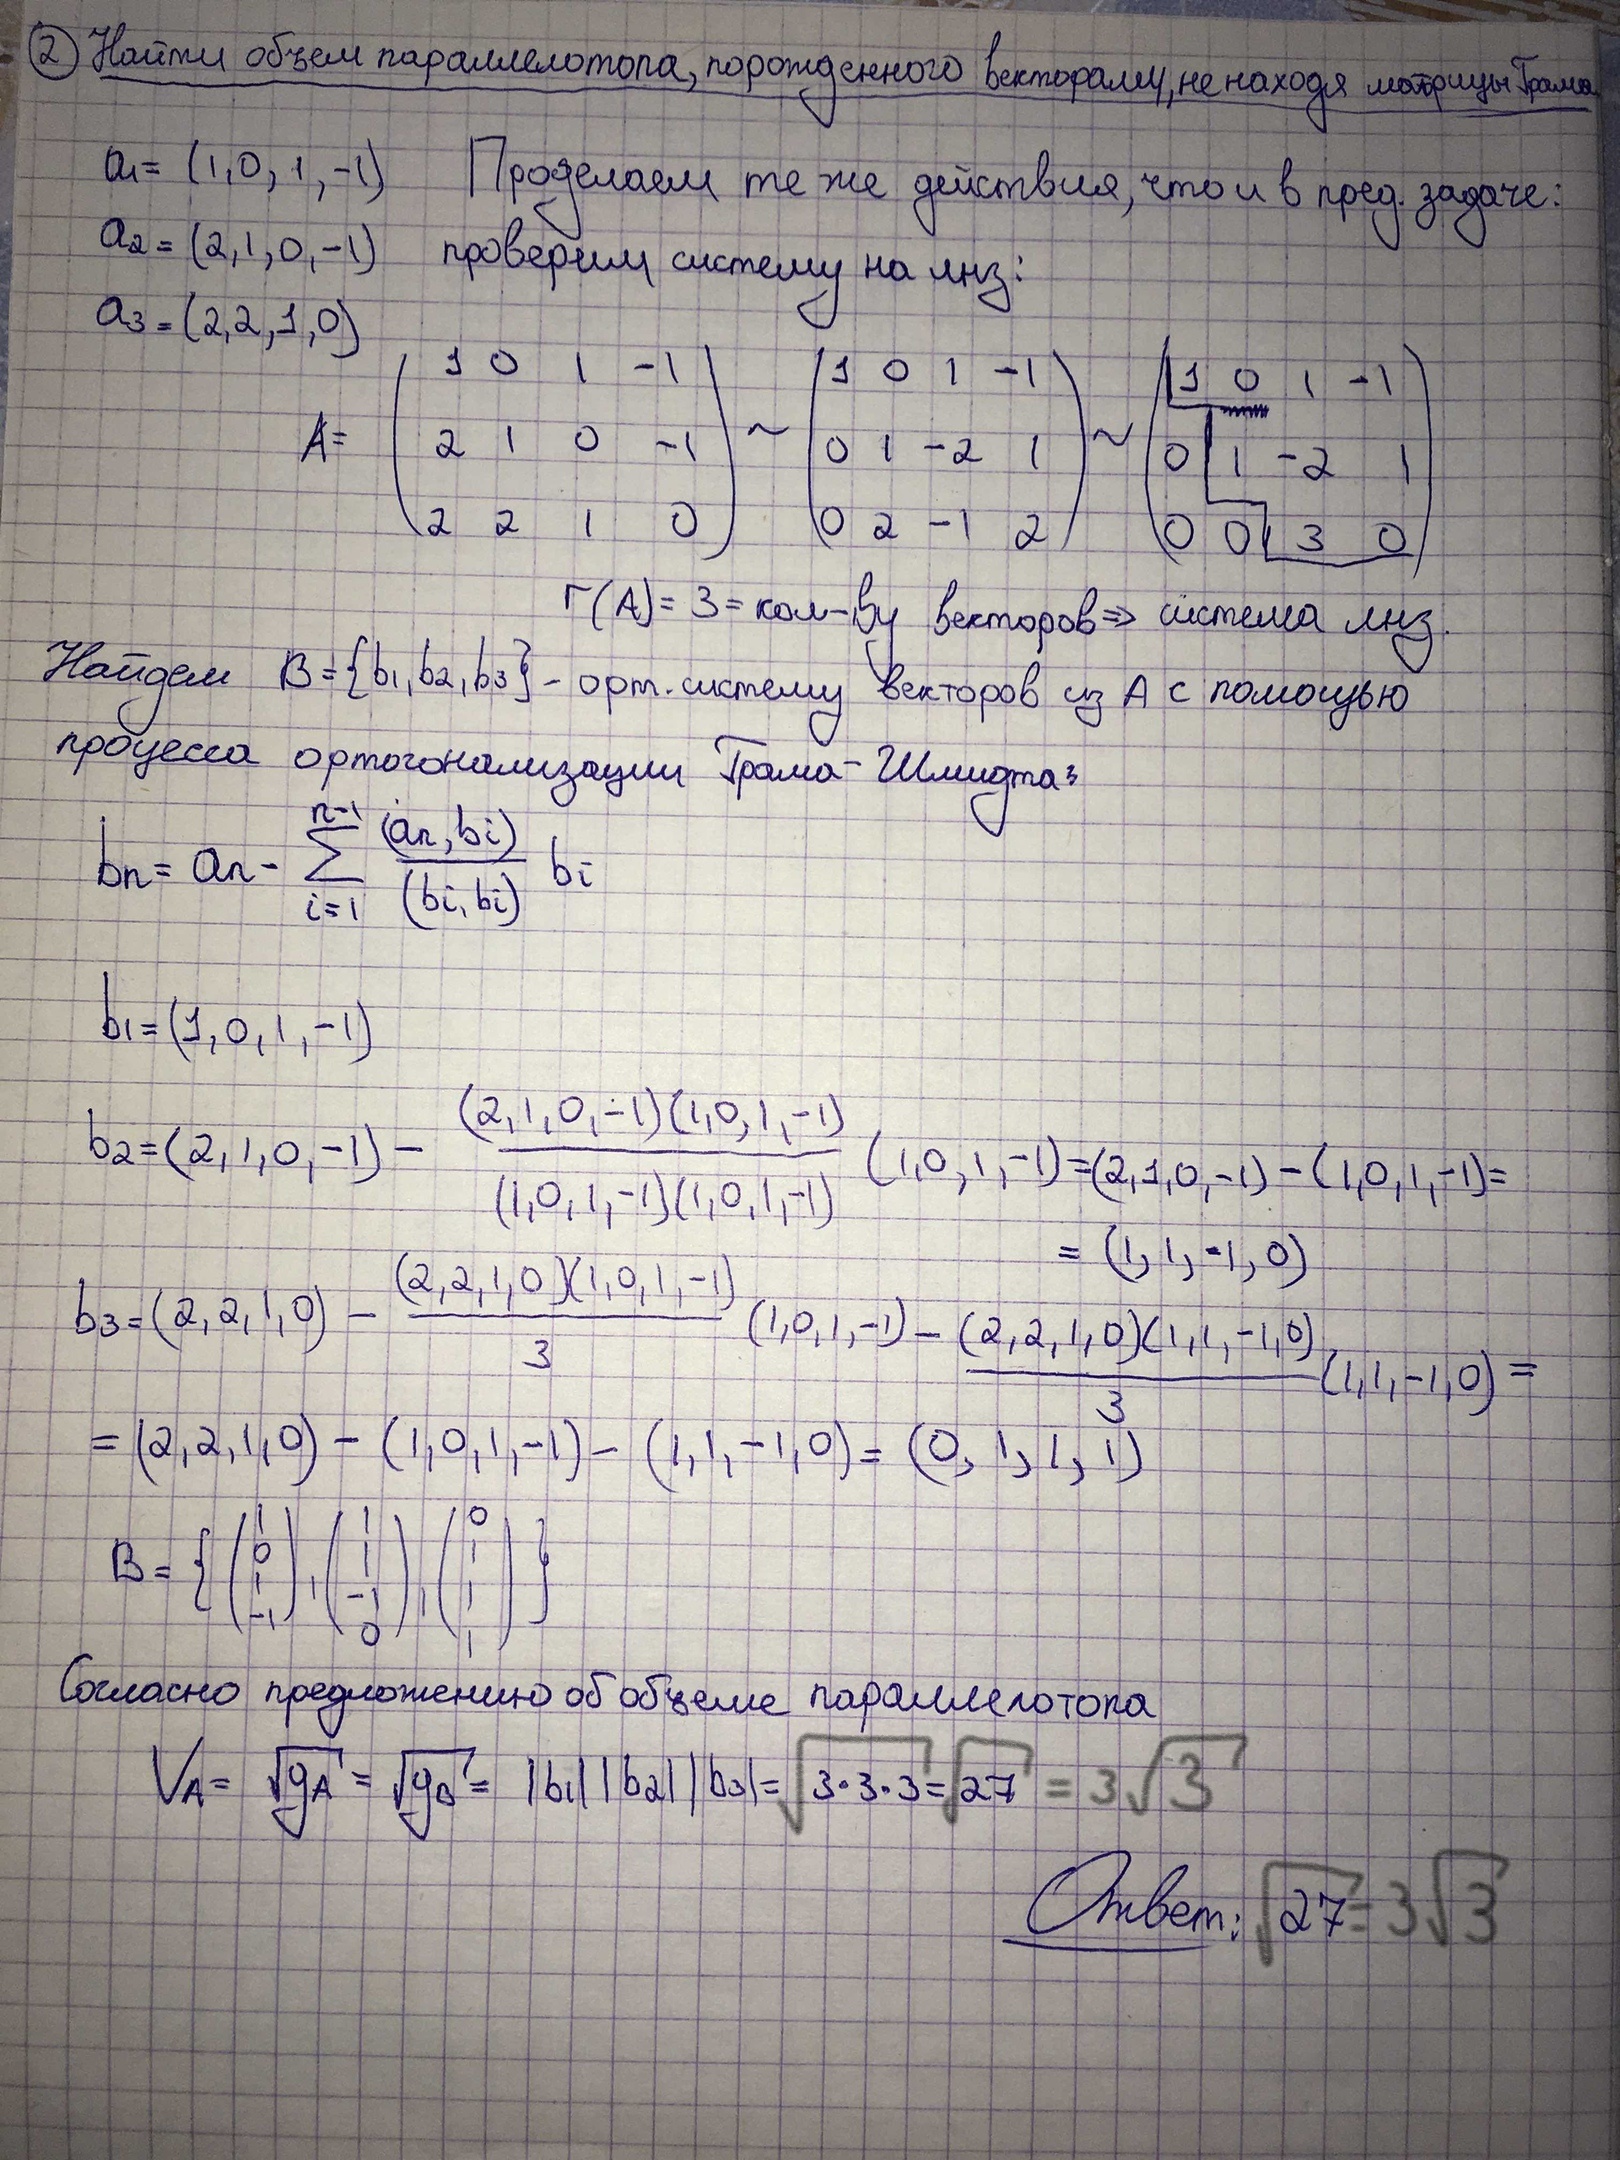 ② Найти объем параллелотопа, порожденного векторами, не находя матрицы Грама
a1 = (1,0,1,-1) Проделаем те же действия, что и в пред. задаче:
a2 = (2,1,0,-1) проверим систему на лнз:
a3 = (2,2,1,0)
A = (1 0 1 -1) ~ (1 0 1 -1) ~ (1 0 1 -1)
(2 1 0 -1) (0 1 -2 1) (0 1 -2 1)
(2 2 1 0) (0 2 -1 2) (0 0 3 0)
r(A) = 3 = кол-ву векторов ⇒ система лнз.
Найдем B = {b1, b2, b3} - орт. систему векторов из A с помощью
процесса ортогонализации Грама-Шмидта:
bn = an - ∑_{i=1}^{n-1} (an, bi)/(bi, bi) bi
b1 = (1,0,1,-1)
b2 = (2,1,0,-1) - (2,1,0,-1)(1,0,1,-1)/(1,0,1,-1)(1,0,1,-1) (1,0,1,-1) = (2,1,0,-1) - (1,0,1,-1) =
= (1,1,-1,0)
b3 = (2,2,1,0) - (2,2,1,0)(1,0,1,-1)/3 (1,0,1,-1) - (2,2,1,0)(1,1,-1,0)/3 (1,1,-1,0) =
= (2,2,1,0) - (1,0,1,-1) - (1,1,-1,0) = (0,1,1,1)
B = {(1 0 1 -1), (1 1 -1 0), (0 1 1 1)}
Согласно предложению об объеме параллелотопа
VA = √gA = √gB = |b1||b2||b3| = √3·3·3 = √27 = 3√3
Ответ: √27 = 3√3